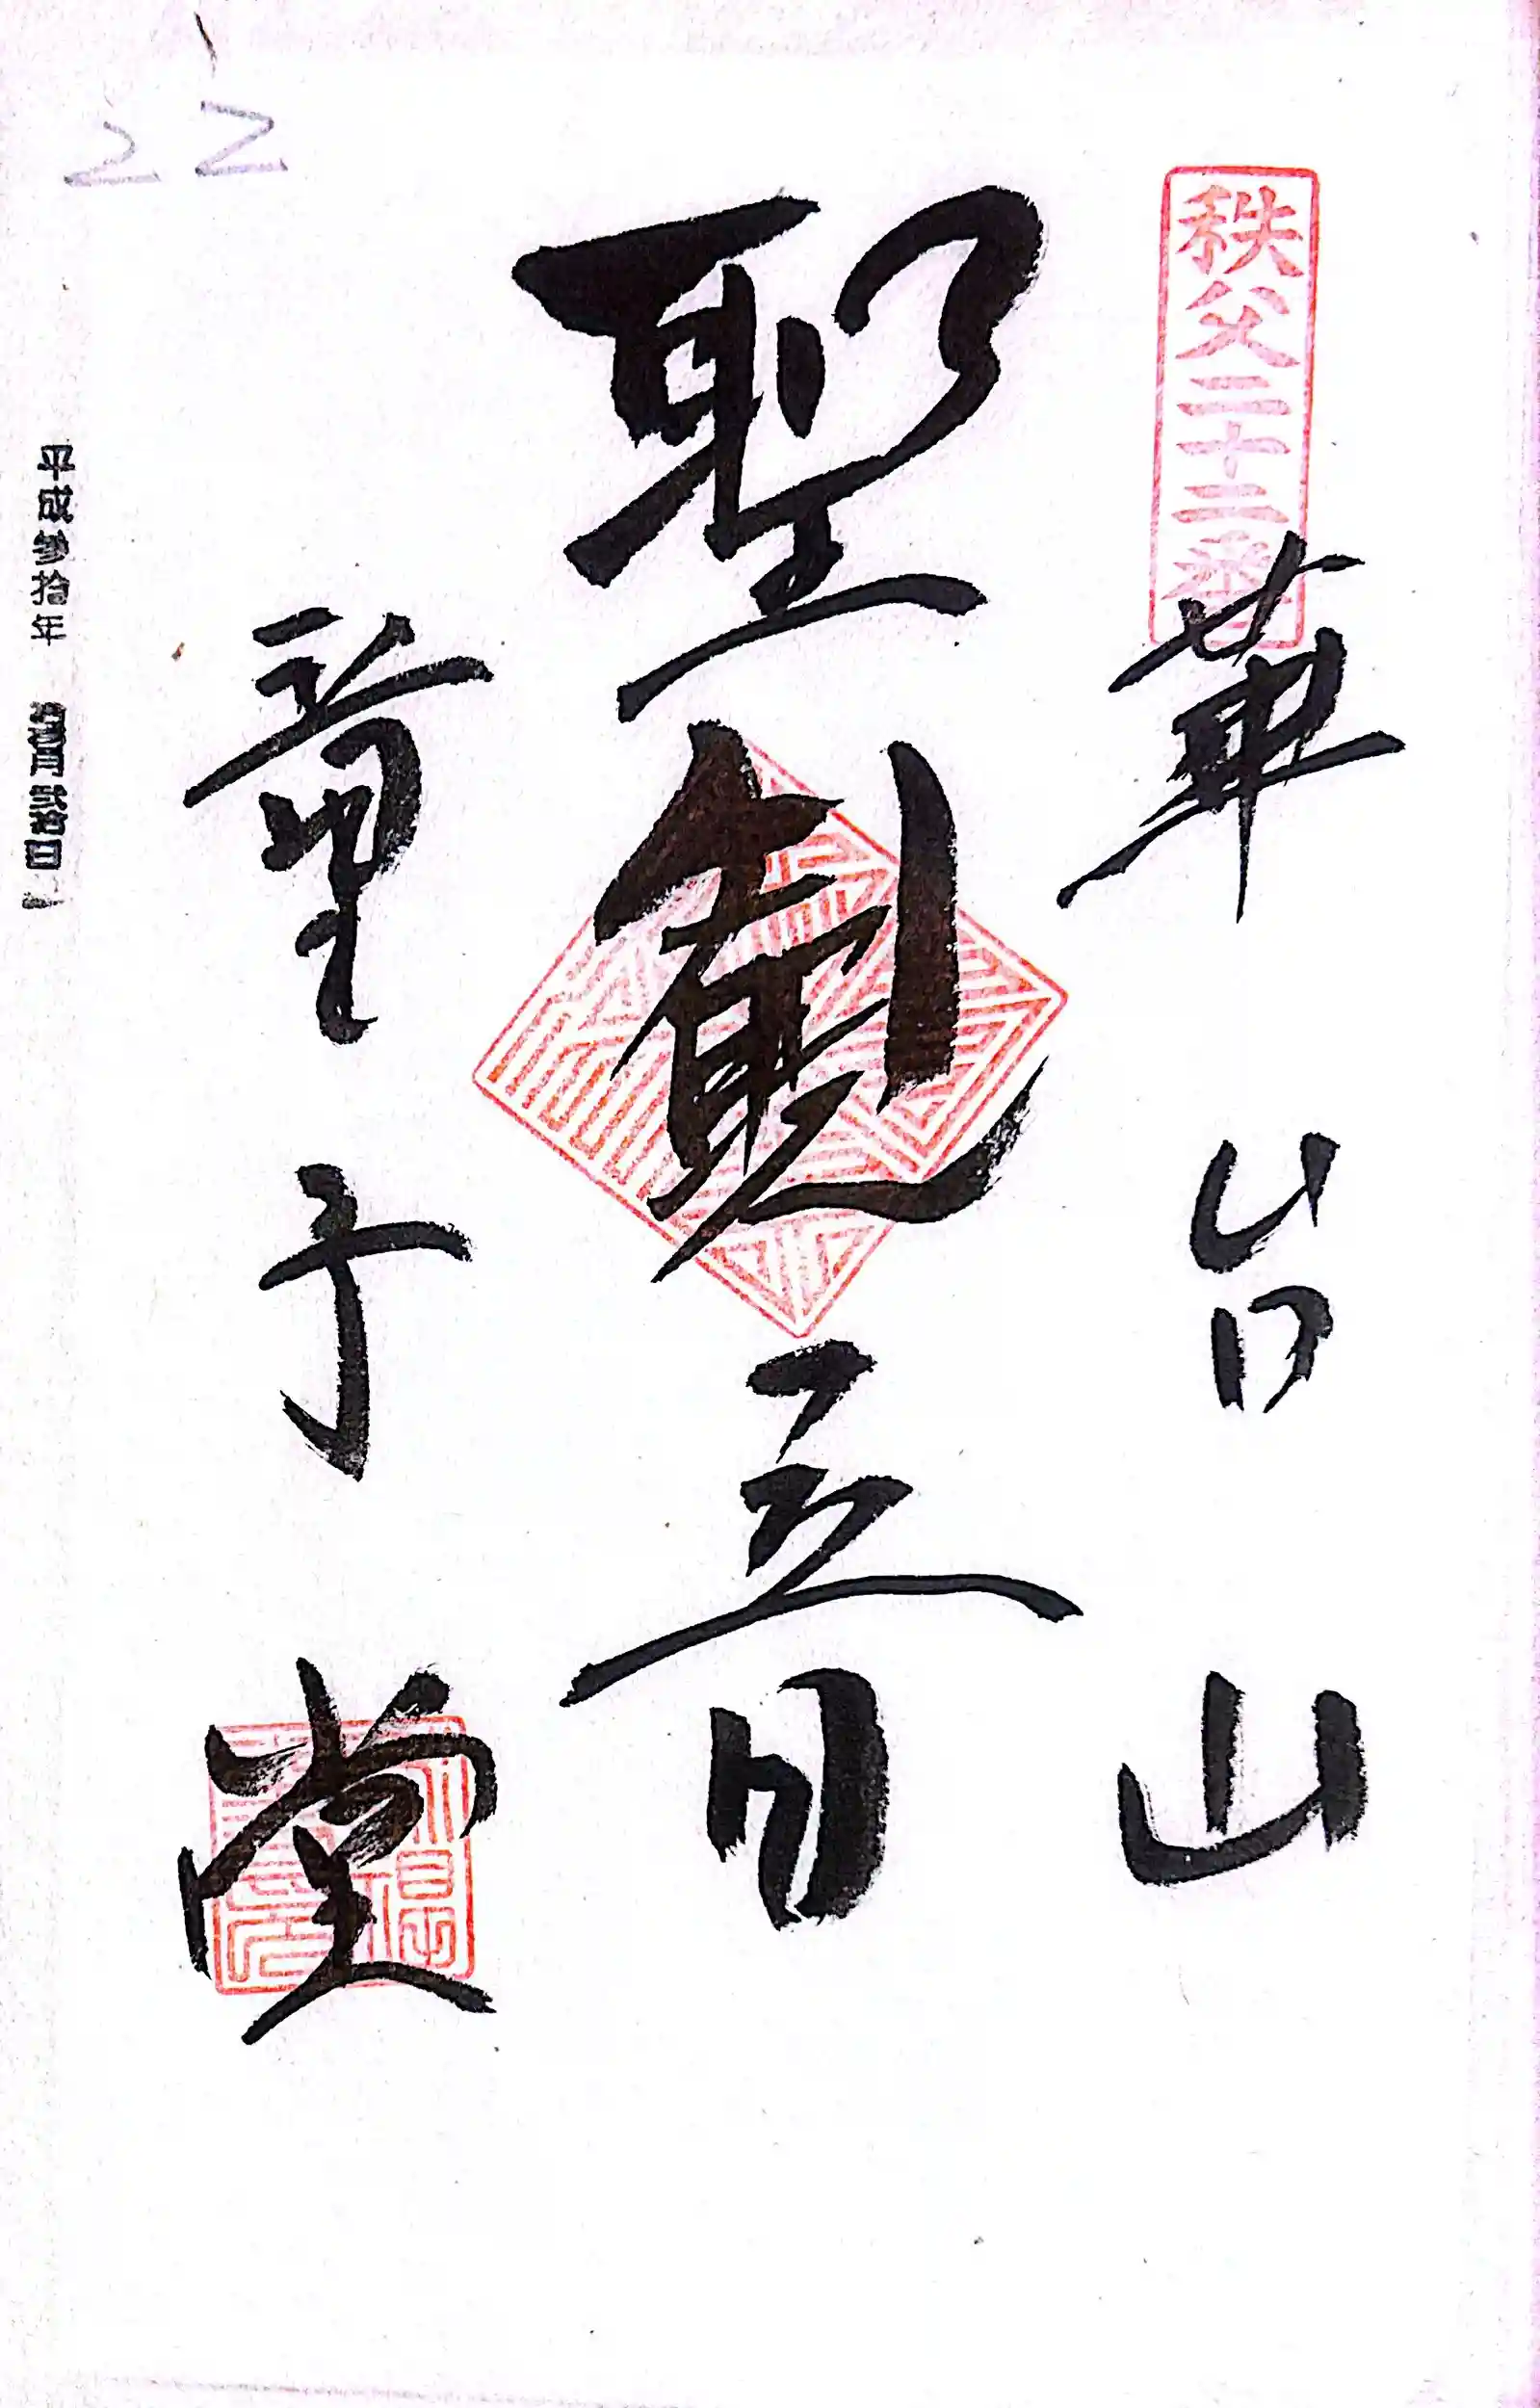 秩父二十二番
華台山
聖観音
童子堂
平成参拾年
22